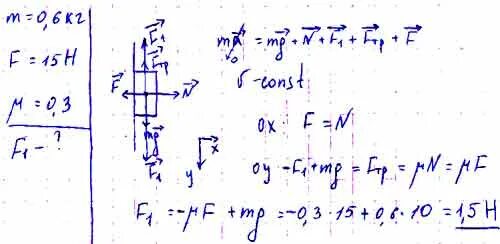 m = 0,6 кг
F = 15 Н
μ = 0,3
F₁ - ?
F₁
Fтр
F
N
mg
F₁
x
y
ma⃗ = mg⃗ + N⃗ + F⃗₁ + F⃗тр + F⃗
0
v - const
ox: F = N
oy -F₁ + mg = Fтр = μN = μF
F₁ = -μF + mg = -0,3·15 + 0,6·10 = 1,5 Н